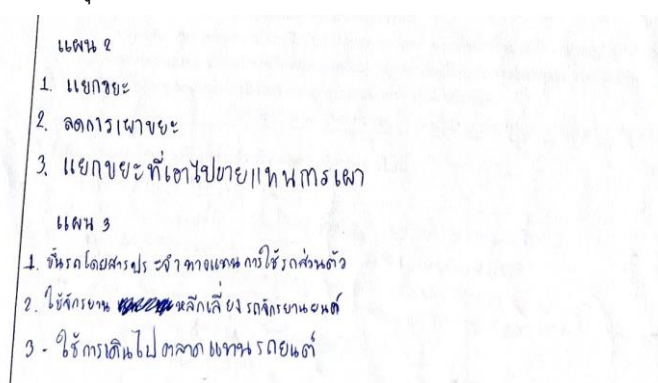 แผน 2
1. แยกขยะ
2. ลดการเผาขยะ
3. แยกขยะที่เอาไปขายแทนการเผา
แผน 3
1. ขึ้นรถโดยสารประจำทางแทนการใช้รถส่วนตัว
2. ใช้จักรยาน หลีกเลี่ยงรถจักรยานยนต์
3 - ใช้การเดินไปตลาดแทนรถยนต์